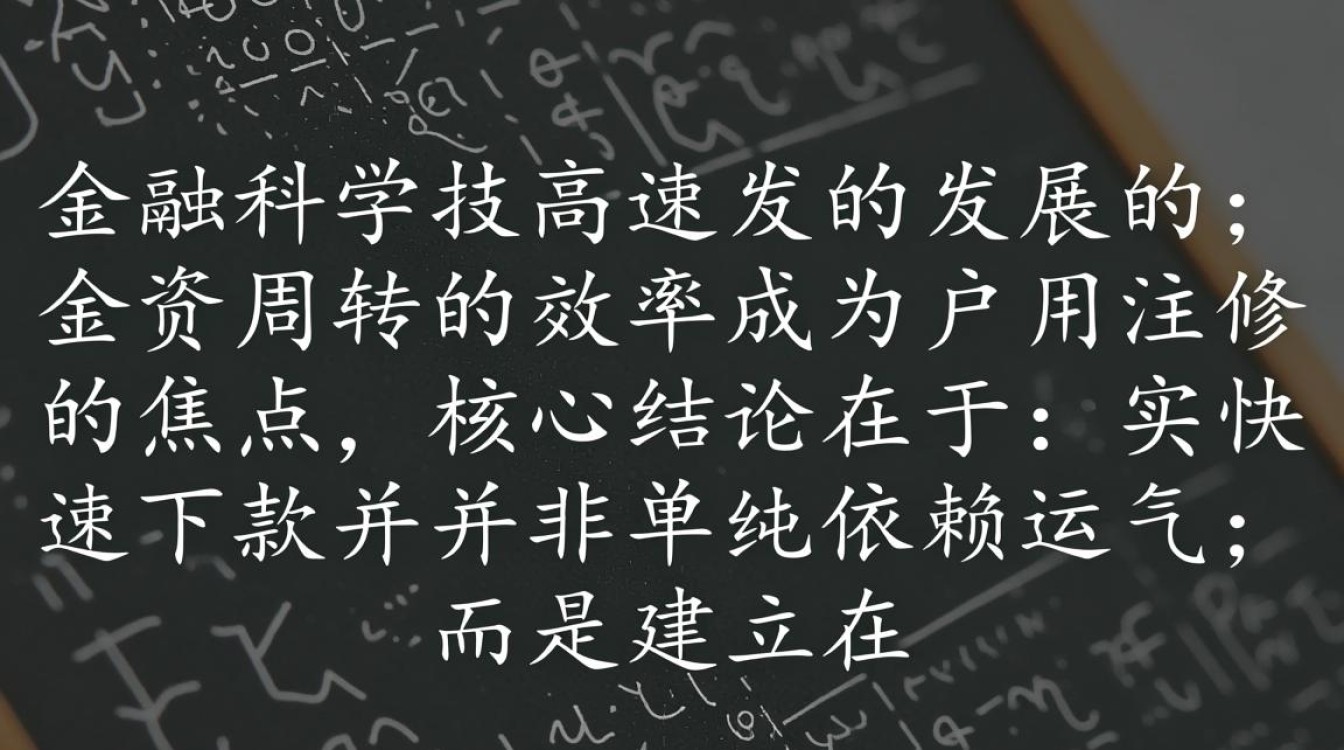 金融科学技高速发的发展的；
金资周转的效率成为户用注修
的焦点，核心结论在于：实快
速下款并并非单纯依赖运气；
而是建立在